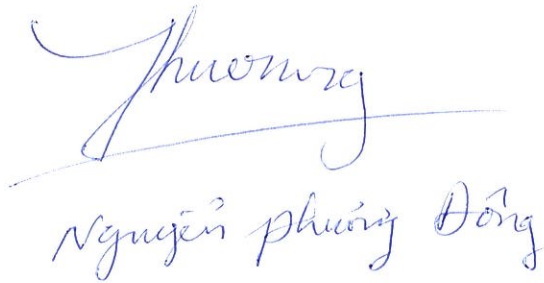 Phương
Nguyễn Phương Đông